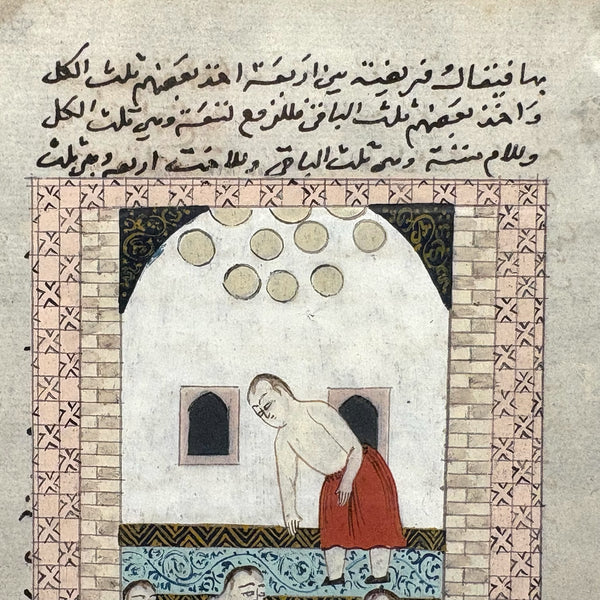 بها فيقال فريضة من اربعة اخذ بعضهم ثلث الكل
واخذ بعضهم ثلث الباقى فللزوج تسعة وهى ثلث الكل
وللام ستة وهى ثلث الباقى وللاخت اربعة وهى ثلث